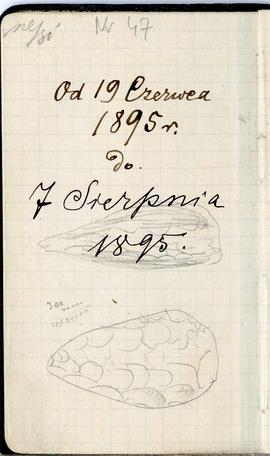 Nr 47
Od 19 Czerwca
1895 r.
do.
7 Sierpnia
1895.
300